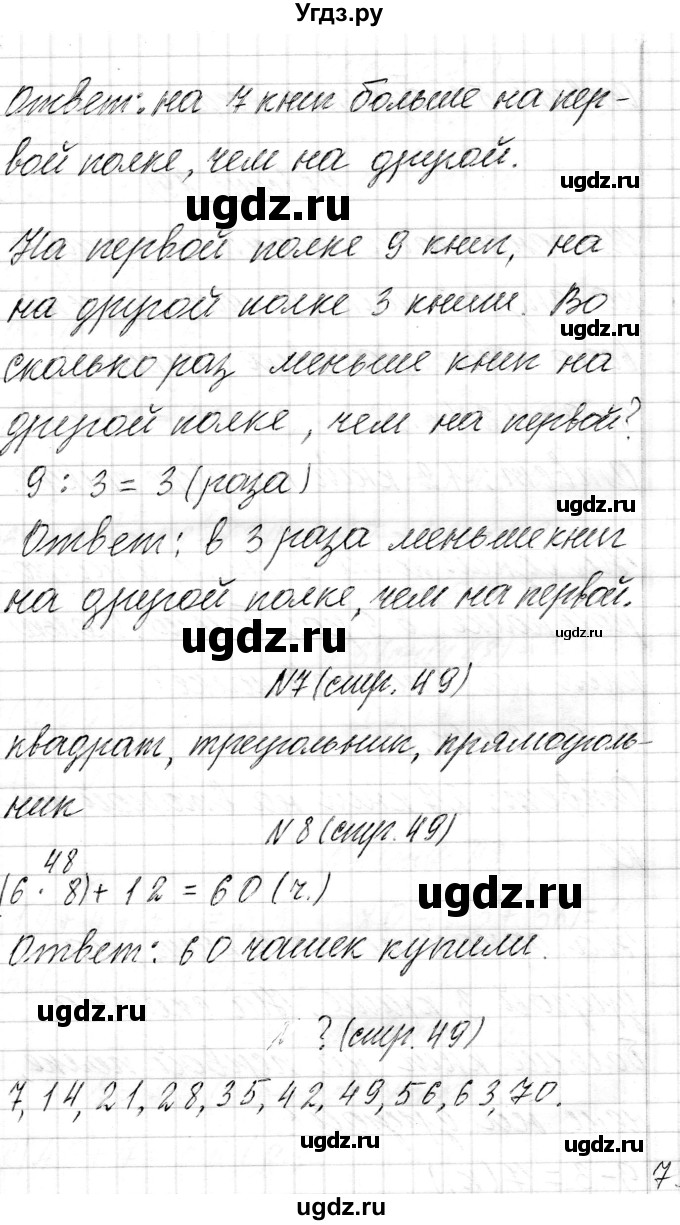 Угдз.ру
Ответ: на 7 книг больше на пер-
вой полке, чем на другой.
ugdz.ru
ugdz.ru
На первой полке 9 книг, на
на другой полке 3 книги. Во
ugdz.ru
сколько раз меньше книг на
другой полке, чем на первой?
9 : 3 = 3 (раза)
ugdz.ru
Ответ: в 3 раза меньше книг
на другой полке, чем на первой.
ugdz.ru
ugdz.ru
N7 (стр. 49)
квадрат, треугольник, прямоуголь-
ник
N 8 (стр. 49)
48
(6 · 8) + 12 = 60 (ч.)
ugdz.ru
Ответ: 60 чашек купили.
ugdz.ru
? (стр. 49)
7, 14, 21, 28, 35, 42, 49, 56, 63, 70.
ugdz.ru
ugdz.ru
7
ugdz.ru